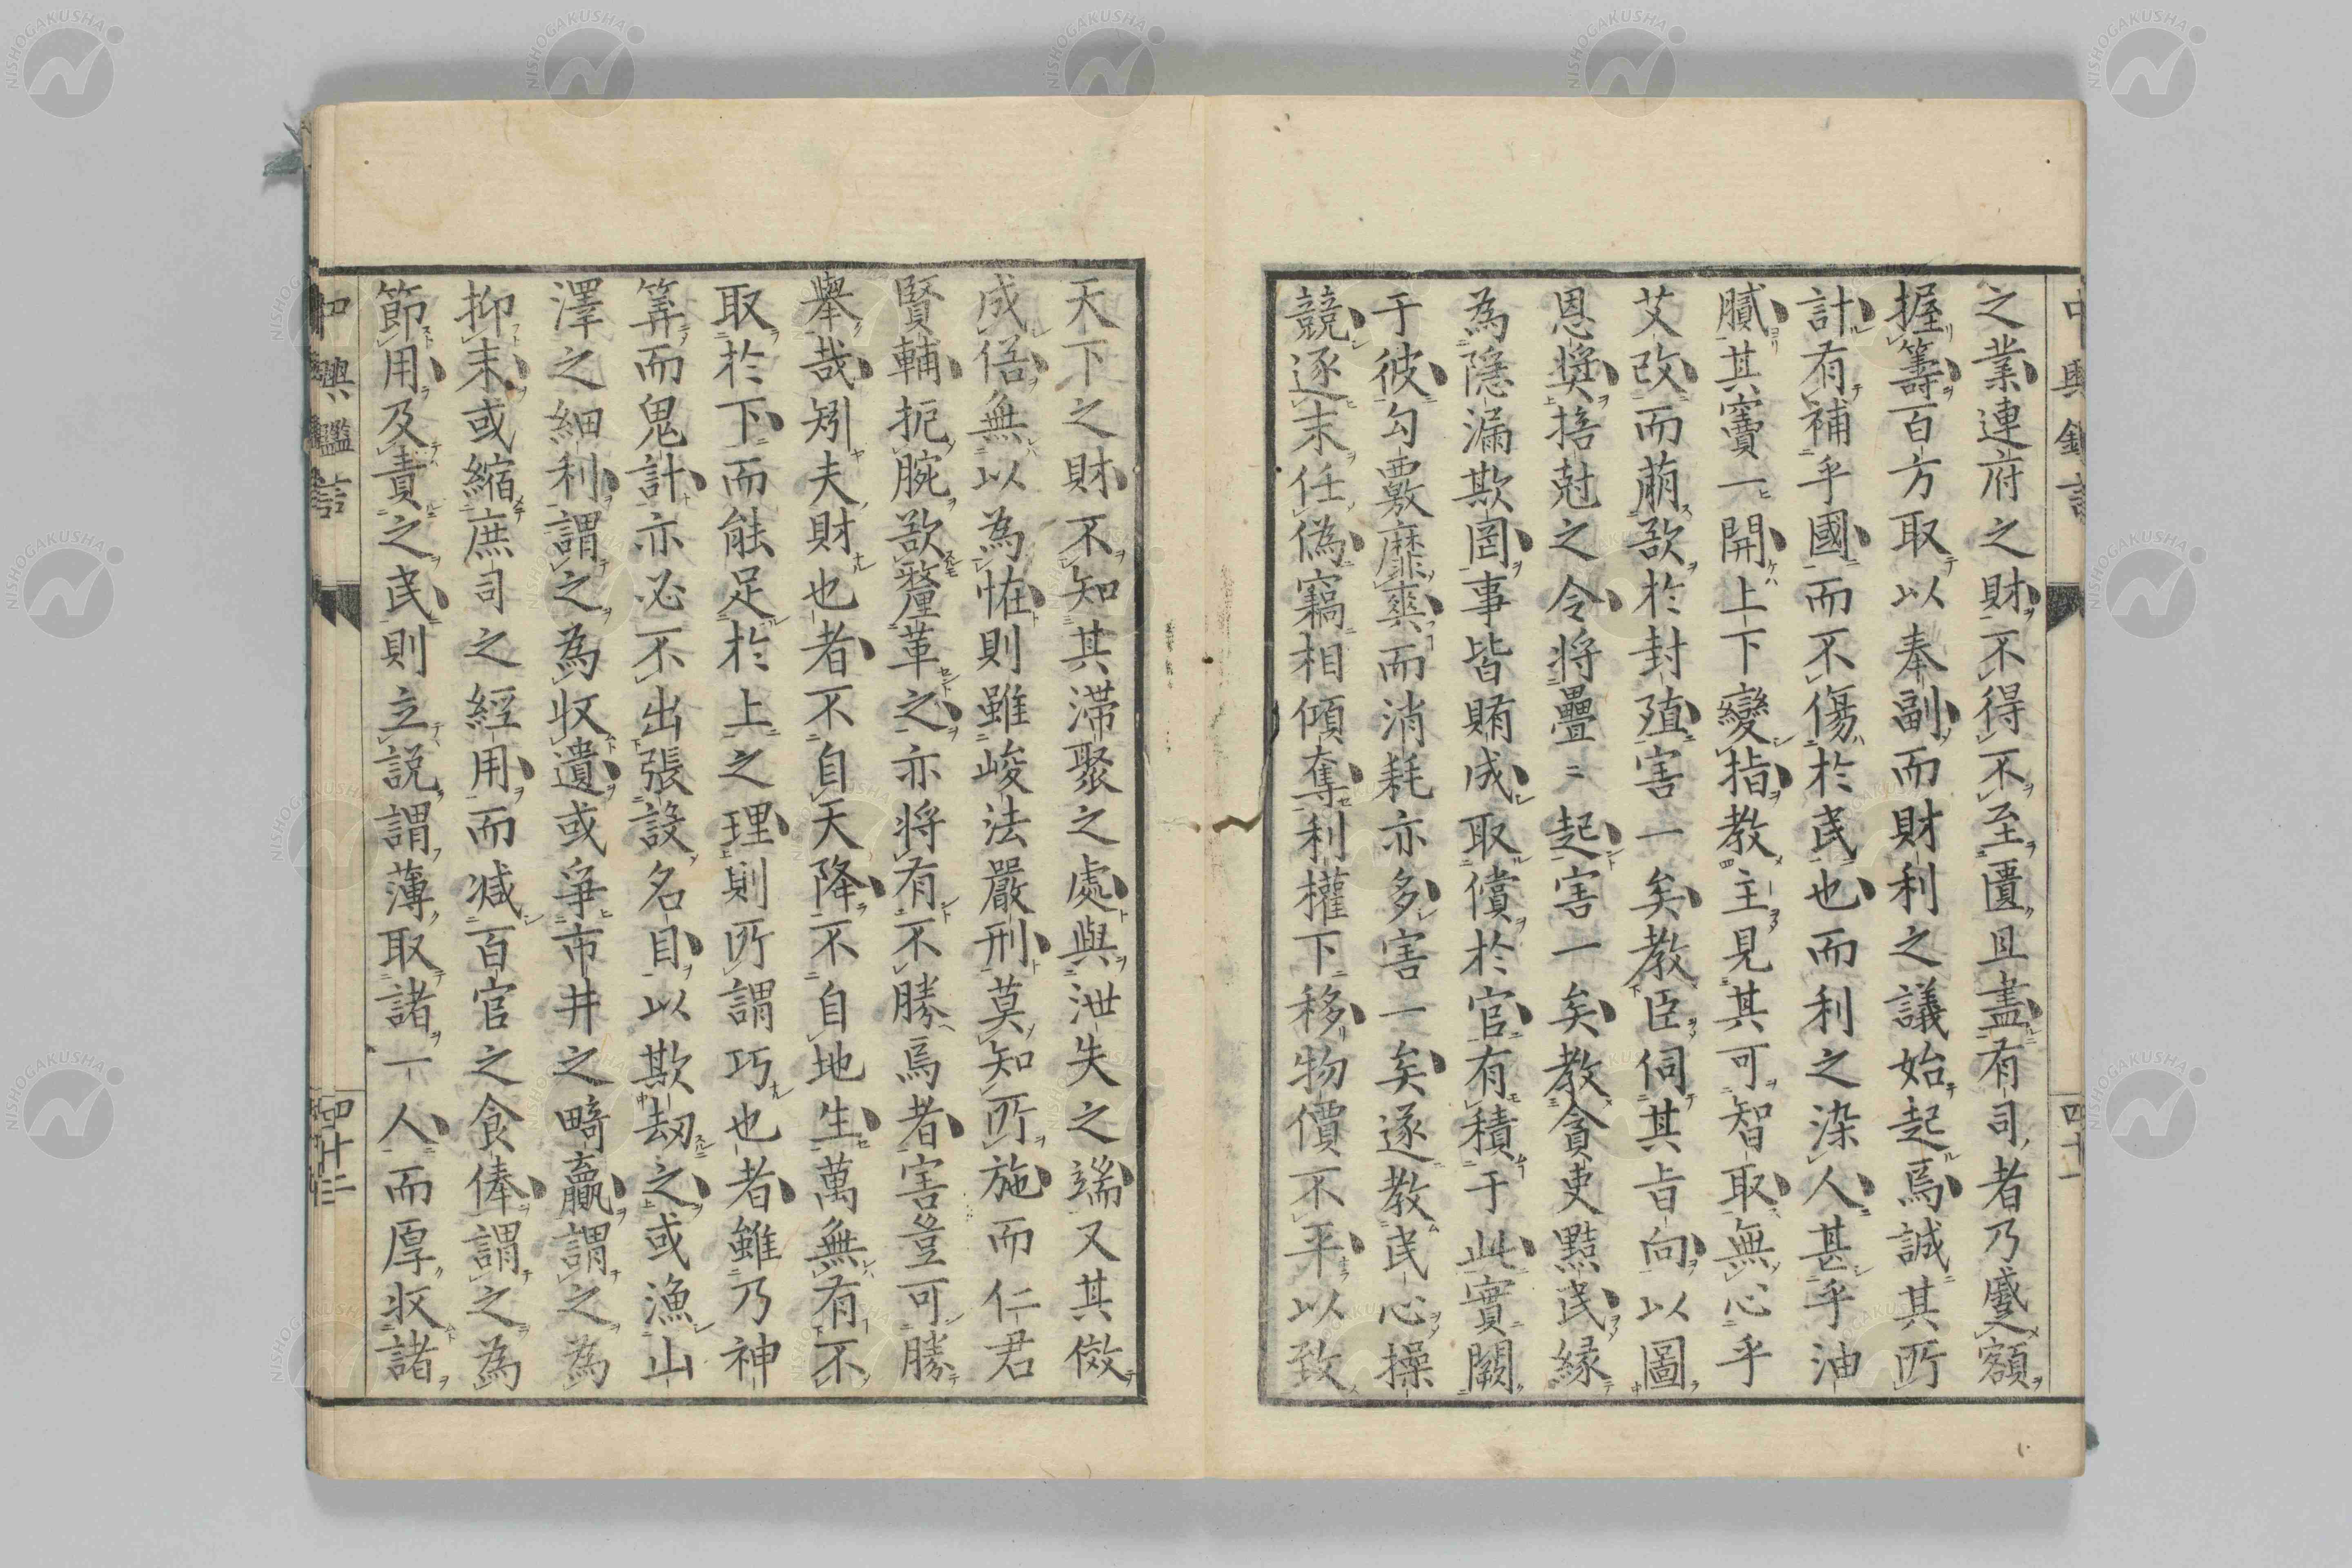 中興鑑言
四十一
之業連府之財不得不至匱且盡有司者乃蹙額
握籌百方取以奉副而財利之議始起焉誠其所
計有補乎國而不傷於民也而利之染人甚乎油
膩其竇一開上下變指教主見其可智取無心乎
艾改而萠欲於封殖害一矣教臣伺其旨向以圖
恩奨掊尅之令将疊〻起害一矣教貪吏黠民縁
為隱漏欺罔事皆賄成取償於官有積于此實闕
于彼勾覈靡爽而消耗亦多害一矣遂教民心操
競逐末任偽竊相傾奪利權下移物價不平以致
天下之財不知其滞聚之處與泄失之端又其傚
成俗無以為恠則雖峻法嚴刑莫知所施而仁君
賢輔扼腕欲釐革之亦将有不勝焉者害豈可勝
舉哉矧夫財也者不自天降不自地生萬無有不
取於下而能足於上之理則所謂巧也者雖乃神
筭而鬼計亦必不出張設名目以欺刼之或漁山
澤之細利謂之為収遺或爭市井之畸贏謂之為
抑末或縮庶司之經用而减百官之食俸謂之為
節用及責之民則立説謂薄取諸一人而厚収諸
中興鑑言
四十二
NISHOGAKUSHA